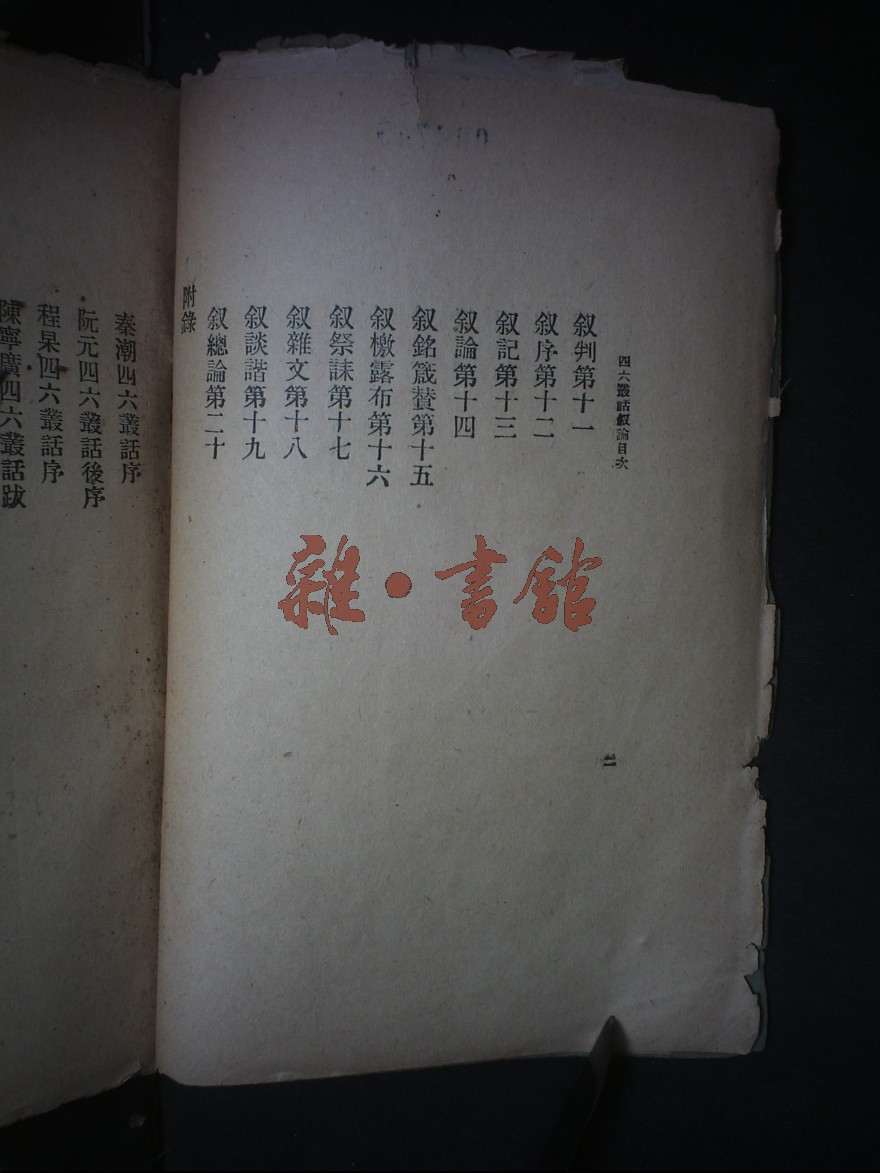 四六叢話叙論目次
叙判第十一
叙序第十二
叙記第十三
叙論第十四
叙銘箴贊第十五
叙檄露布第十六
叙祭誄第十七
叙雜文第十八
叙談諧第十九
叙總論第二十
附錄
二
秦潮四六叢話序
阮元四六叢話後序
程杲四六叢話序
陳寧廣四六叢話跋
雜·書館